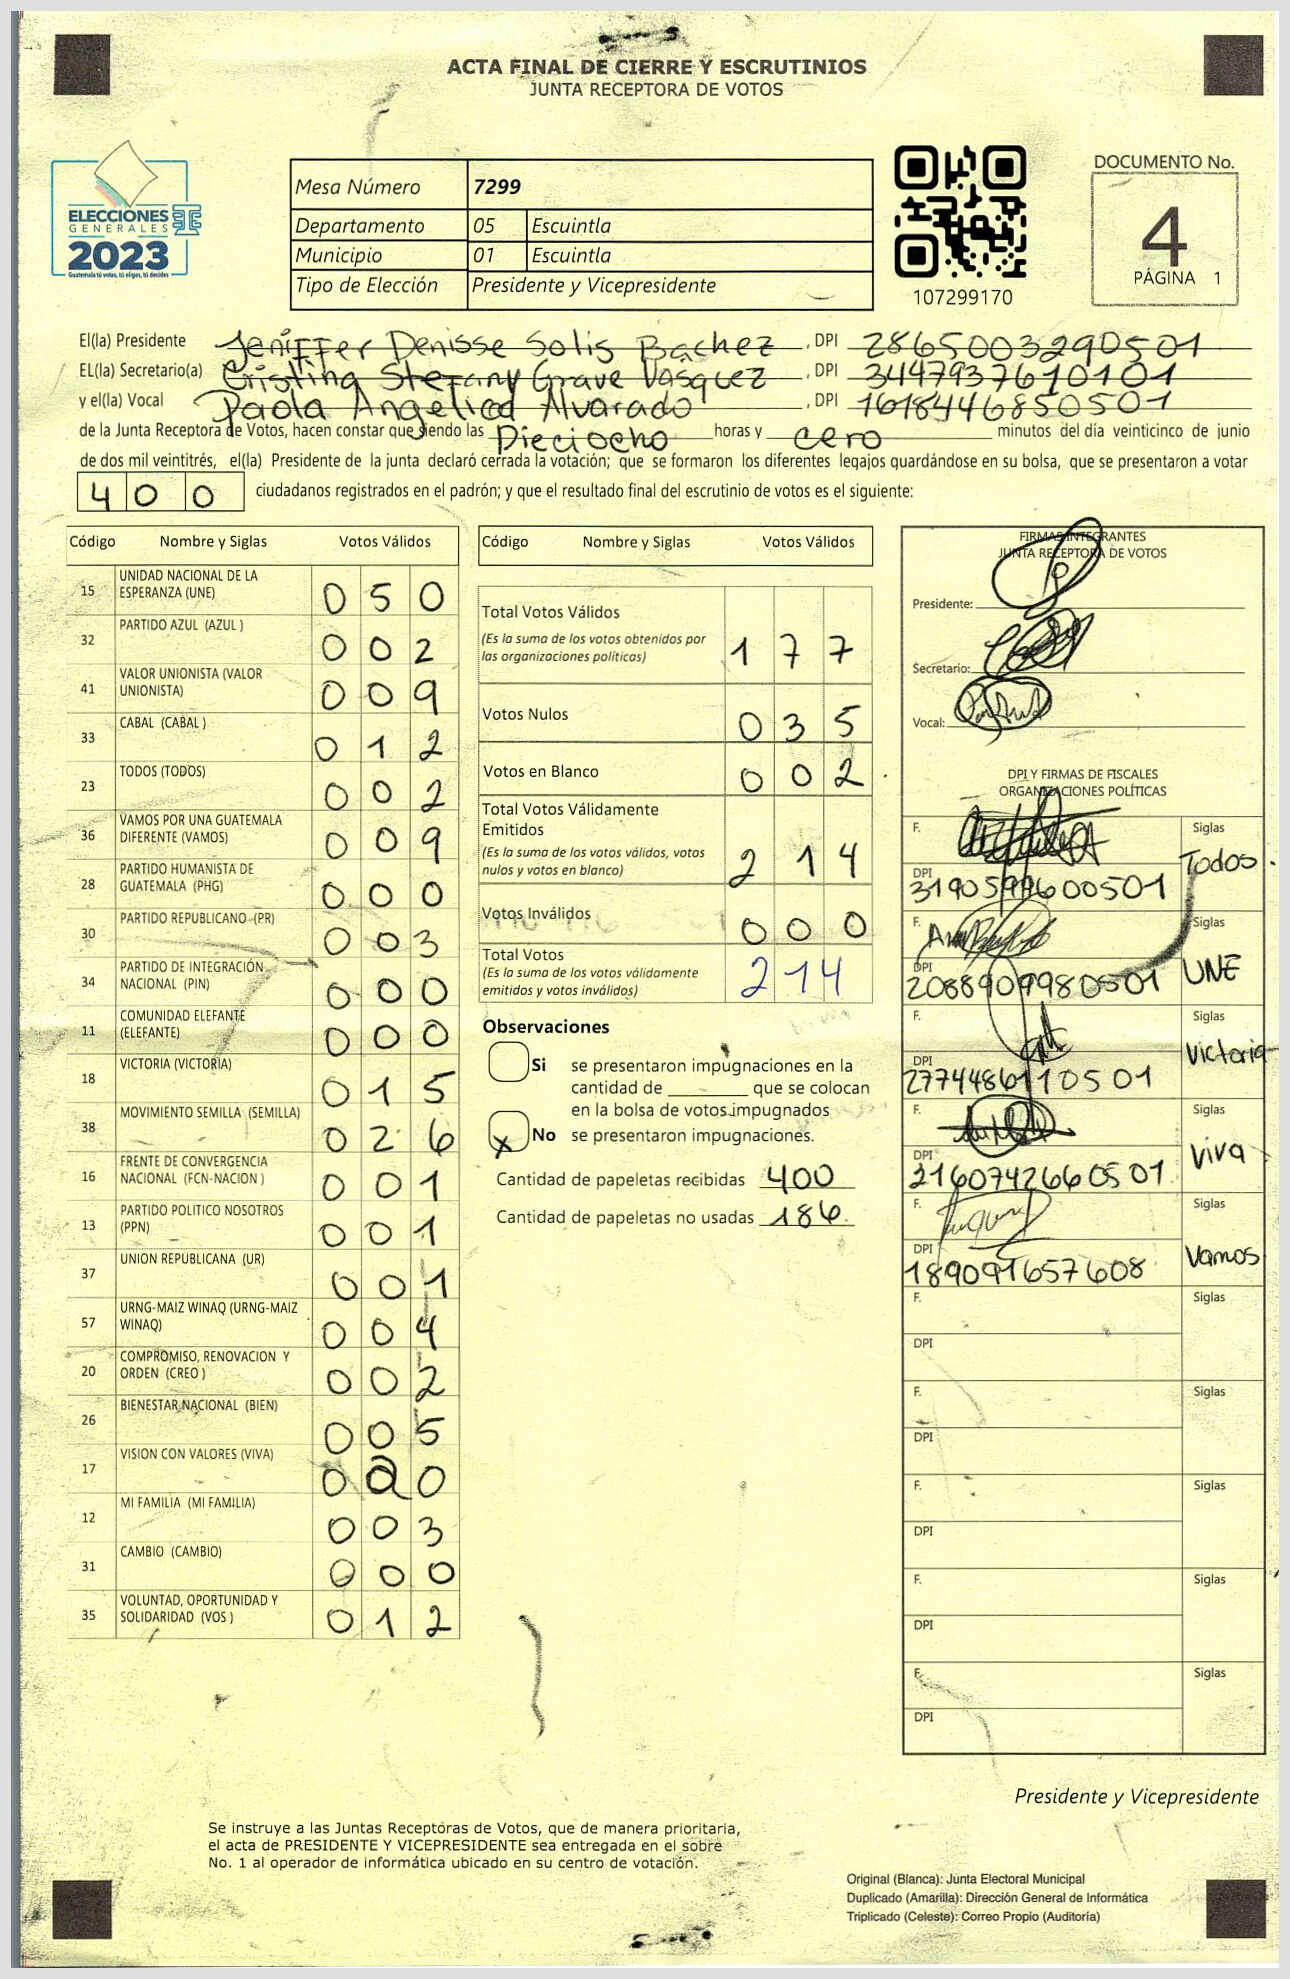 ACTA FINAL DE CIERRE Y ESCRUTINIOS
JUNTA RECEPTORA DE VOTOS
ELECCIONES
GENERALES
2023
Guatemala tú votas, tú eliges, tú decides
Mesa Número 7299
Departamento 05 Escuintla
Municipio 01 Escuintla
Tipo de Elección Presidente y Vicepresidente
107299170
DOCUMENTO No.
4
PÁGINA 1
El(la) Presidente Jeniffer Denisse Solis Bachez, DPI 2865003290501
EL(la) Secretario(a) Cristina Stefany Grave Vasquez, DPI 3447937610101
y el(la) Vocal Paola Angelica Alvarado, DPI 1618446850501
de la Junta Receptora de Votos, hacen constar que siendo las Dieciocho horas y cero minutos del día veinticinco de junio
de dos mil veintitrés, el(la) Presidente de la junta declaró cerrada la votación; que se formaron los diferentes legajos guardándose en su bolsa, que se presentaron a votar
400 ciudadanos registrados en el padrón; y que el resultado final del escrutinio de votos es el siguiente:
Código Nombre y Siglas Votos Válidos
15 UNIDAD NACIONAL DE LA ESPERANZA (UNE) 0 5 0
32 PARTIDO AZUL (AZUL ) 0 0 2
41 VALOR UNIONISTA (VALOR UNIONISTA) 0 0 9
33 CABAL (CABAL ) 0 1 2
23 TODOS (TODOS) 0 0 2
36 VAMOS POR UNA GUATEMALA DIFERENTE (VAMOS) 0 0 9
28 PARTIDO HUMANISTA DE GUATEMALA (PHG) 0 0 0
30 PARTIDO REPUBLICANO (PR) 0 0 3
34 PARTIDO DE INTEGRACIÓN NACIONAL (PIN) 0 0 0
11 COMUNIDAD ELEFANTE (ELEFANTE) 0 0 0
18 VICTORIA (VICTORIA) 0 1 5
38 MOVIMIENTO SEMILLA (SEMILLA) 0 2 6
16 FRENTE DE CONVERGENCIA NACIONAL (FCN-NACION ) 0 0 1
13 PARTIDO POLITICO NOSOTROS (PPN) 0 0 1
37 UNION REPUBLICANA (UR) 0 0 1
57 URNG-MAIZ WINAQ (URNG-MAIZ WINAQ) 0 0 4
20 COMPROMISO, RENOVACION Y ORDEN (CREO ) 0 0 2
26 BIENESTAR NACIONAL (BIEN) 0 0 5
17 VISION CON VALORES (VIVA) 0 2 0
12 MI FAMILIA (MI FAMILIA) 0 0 3
31 CAMBIO (CAMBIO) 0 0 0
35 VOLUNTAD, OPORTUNIDAD Y SOLIDARIDAD (VOS ) 0 1 2
Código Nombre y Siglas Votos Válidos
Total Votos Válidos
(Es la suma de los votos obtenidos por
las organizaciones políticas) 1 7 7
Votos Nulos 0 3 5
Votos en Blanco 0 0 2
Total Votos Válidamente
Emitidos
(Es la suma de los votos válidos, votos
nulos y votos en blanco) 2 1 4
Votos Inválidos 0 0 0
Total Votos
(Es la suma de los votos válidamente
emitidos y votos inválidos) 2 1 4
Observaciones
Si se presentaron impugnaciones en la
cantidad de ________ que se colocan
en la bolsa de votos impugnados
x No se presentaron impugnaciones.
Cantidad de papeletas recibidas 400
Cantidad de papeletas no usadas 186
FIRMAS INTEGRANTES
JUNTA RECEPTORA DE VOTOS
Presidente:
Secretario:
Vocal:
DPI Y FIRMAS DE FISCALES
ORGANIZACIONES POLÍTICAS
F. Siglas Todos
DPI 3190599600501
F. Siglas UNE
DPI 2088909980501
F. Siglas Victoria
DPI 2774486110501
F. Siglas Viva
DPI 2160742660501
F. Siglas Vamos
DPI 189091657608
F. Siglas
DPI
F. Siglas
DPI
F. Siglas
DPI
F. Siglas
DPI
F. Siglas
DPI
Presidente y Vicepresidente
Se instruye a las Juntas Receptóras de Votos, que de manera prioritaria,
el acta de PRESIDENTE Y VICEPRESIDENTE sea entregada en el sobre
No. 1 al operador de informática ubicado en su centro de votación.
Original (Blanca): Junta Electoral Municipal
Duplicado (Amarilla): Dirección General de Informática
Triplicado (Celeste): Correo Propio (Auditoría)